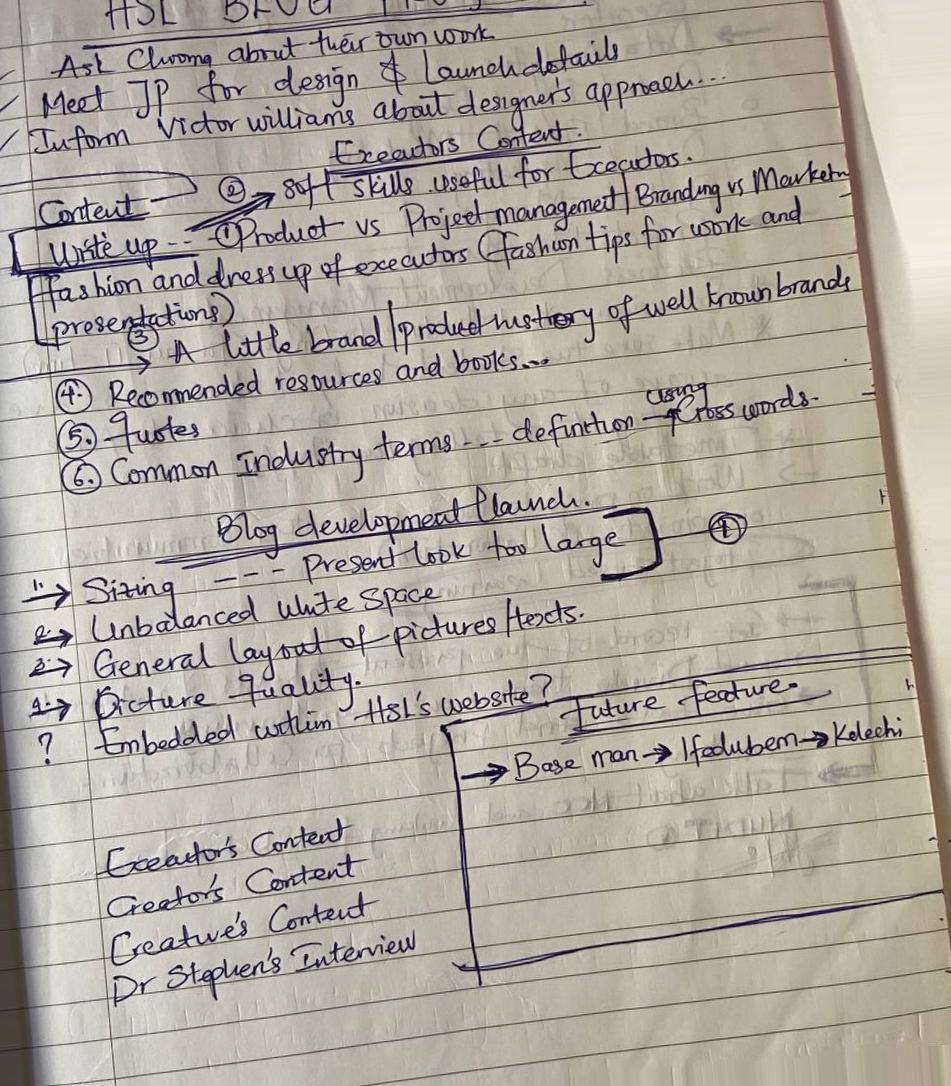 HSL BLOG
Ask Chroma about their own work
Meet JP for design & launch details
Inform Victor williams about designer's approach...
Executors Content.
② → Soft skills useful for Executors.
Content
Write up -- ① Product vs Project management | Branding vs Marketin
(fashion and dress up of executors (fashion tips for work and
presentations)
③ → A little brand/product history of well known brands
④ Recommended resources and books...
⑤ Quotes
using
⑥ Common Industry terms --- definition → Cross words.
Blog development/launch.
1. → Sizing --- Present look too large ] — ①
2. → Unbalanced white space
3. → General layout of pictures/texts.
4. → Picture quality.
? Embedded within HSL's website?
Future feature.
→ Base man → Ifedubem → Kelechi
Executor's Content
Creator's Content
Creative's Content
Dr Stephen's Interview